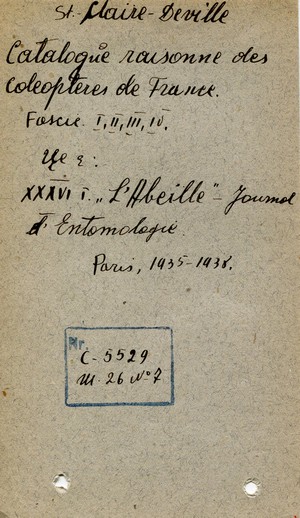 St. Claire-Deville
Catalogue raisonne des
coleopteres de France.
Fascic. I, II, III, IV.
XXXVI T. „L'Abeille" - Journal
d'Entomologie.
Paris, 1935-1938.
Nr.
C-5529
Ш. 26 № 7